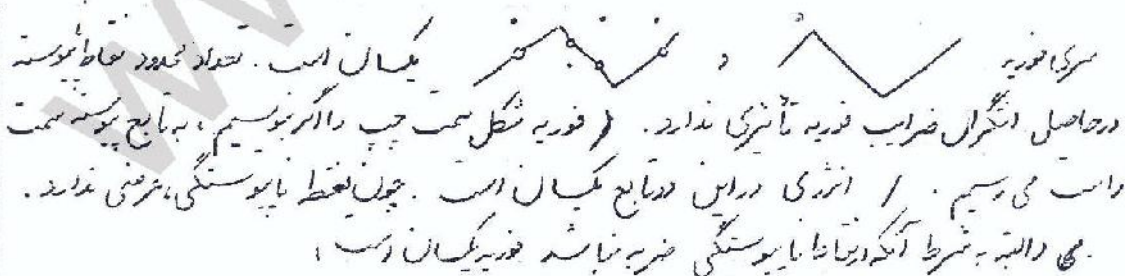 سری فوریه و یکسان است. تعداد محدود نقاط ناپیوسته
در حاصل انتگرال ضرایب فوریه تأثیری ندارد. (فوریه شکل سمت چپ را اگر بنویسیم، به تابع پیوسته سمت
راست می رسیم. / انرژی در این دو تابع یکسان است. چون نقطه ناپیوستگی، فرقی ندارد.
والبته به شرط آنکه در نقاط ناپیوستگی ضربه نباشد فوریه یکسان است